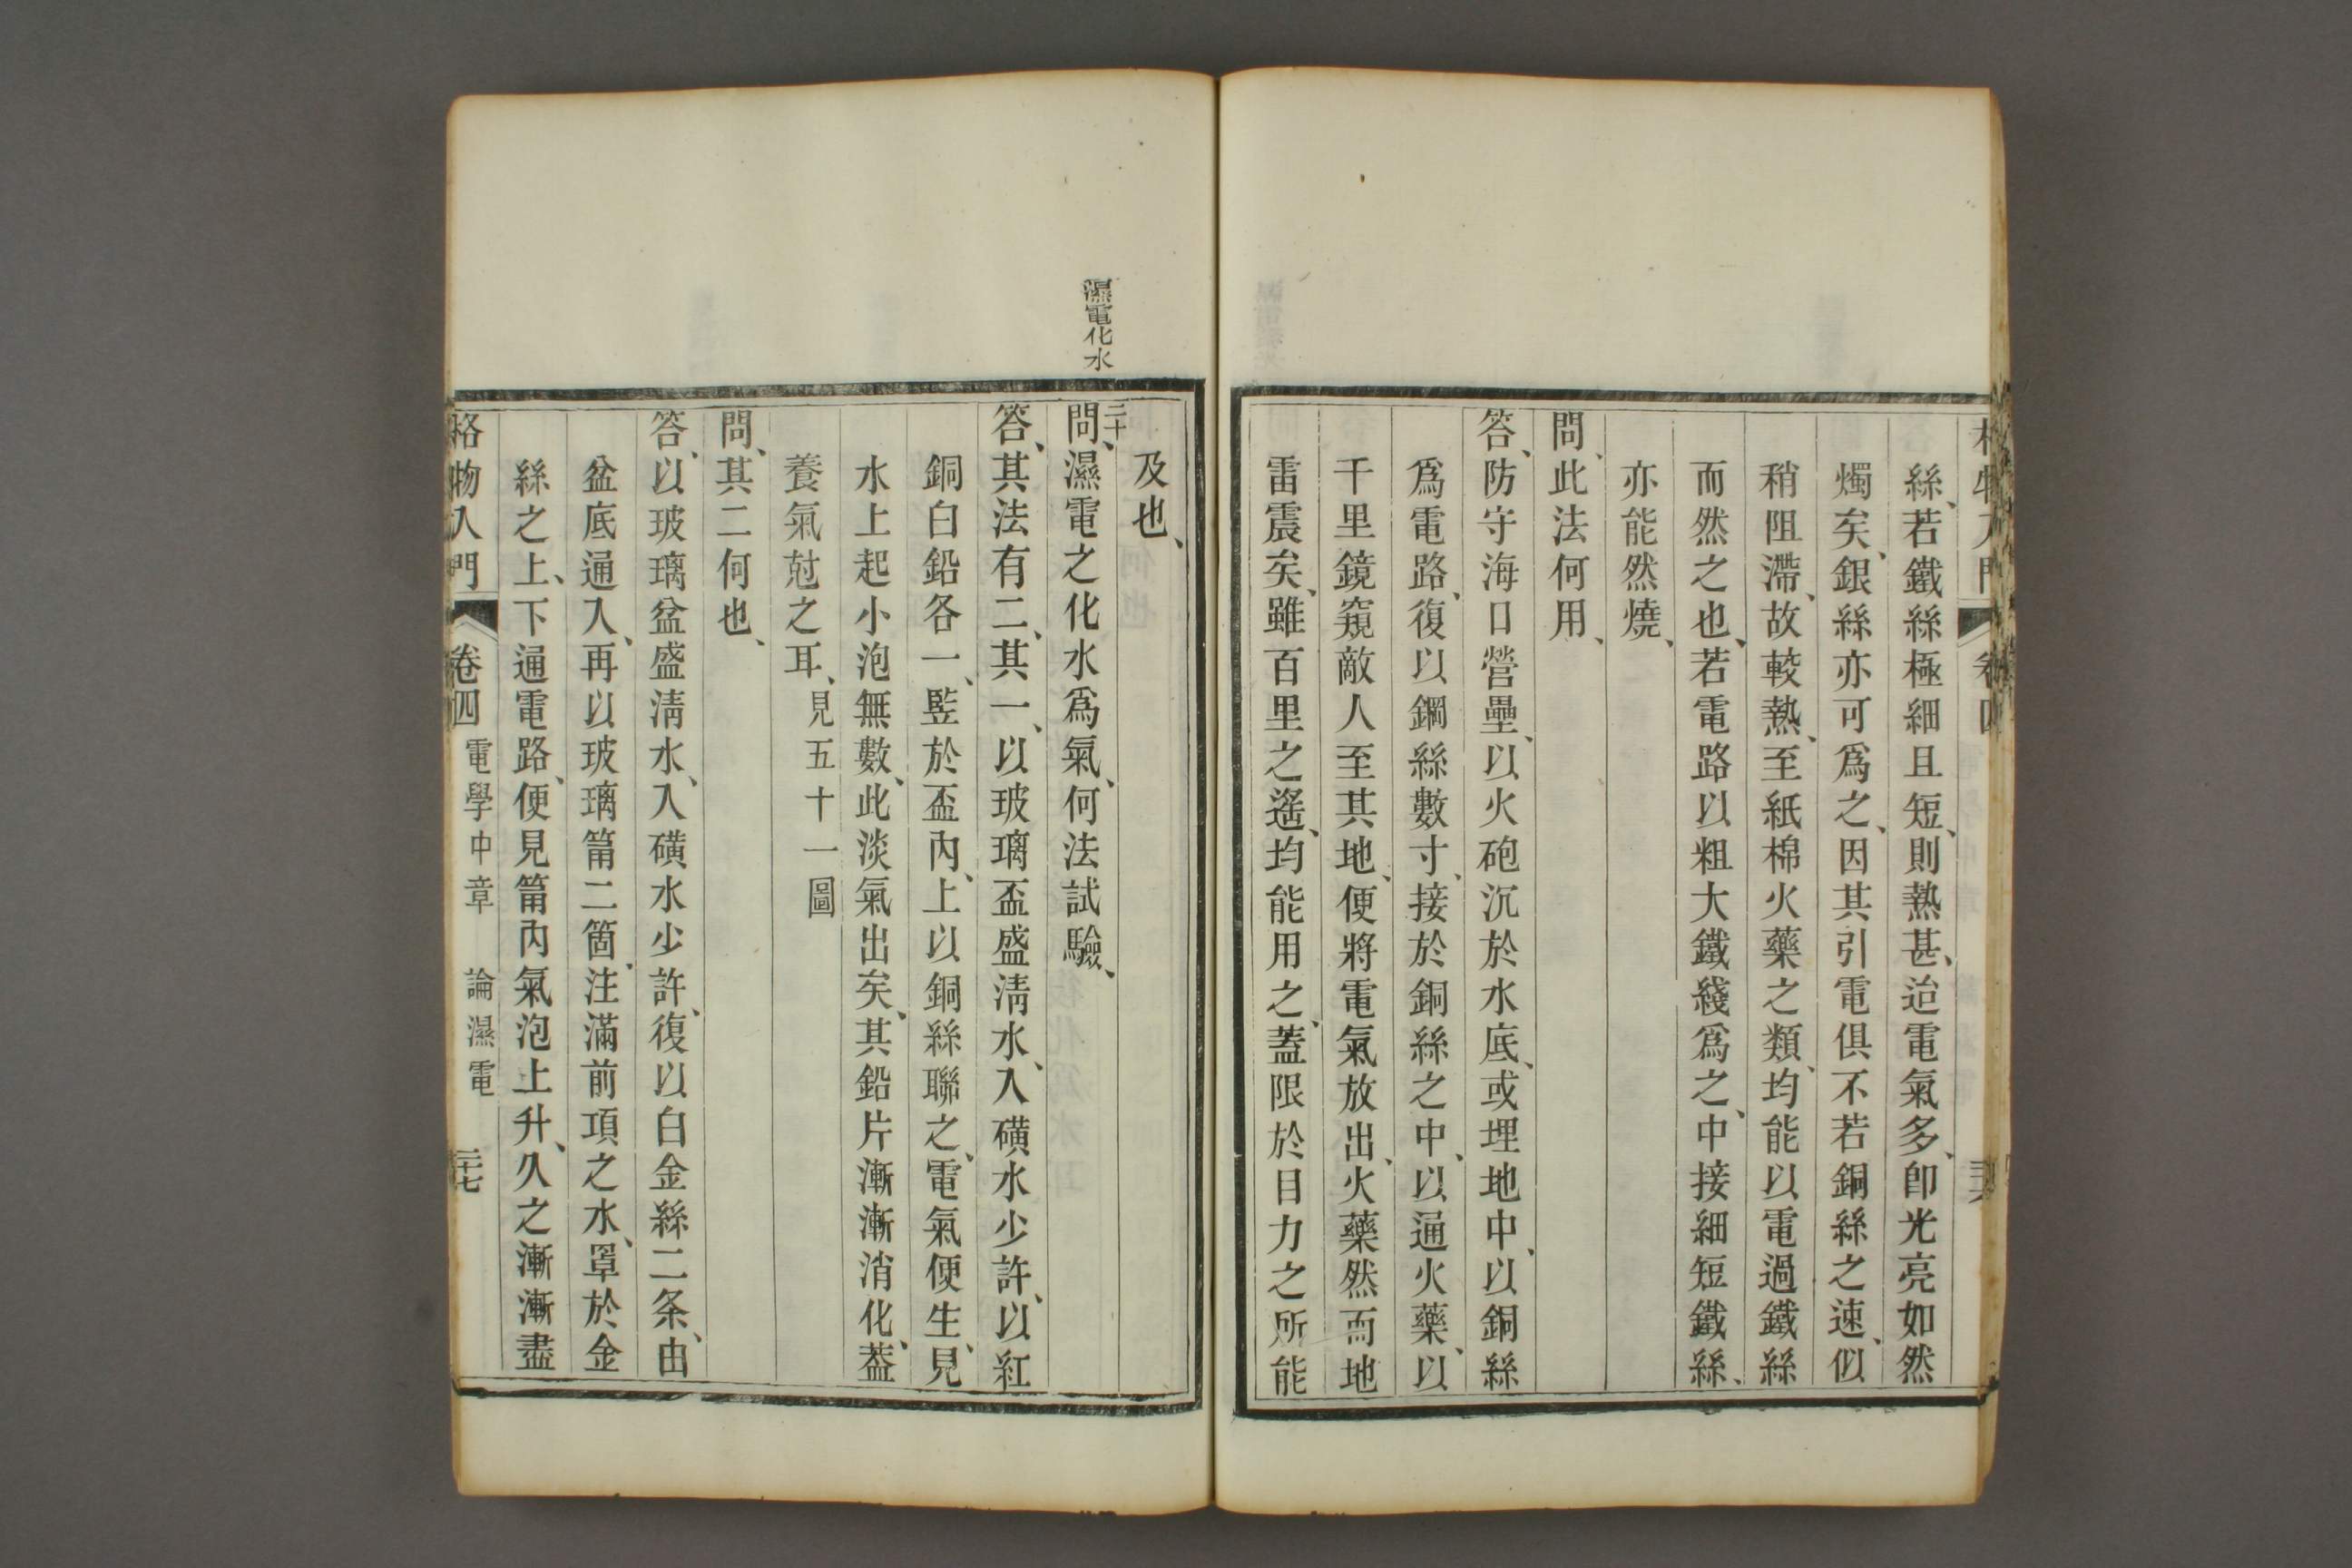 絲、若鐵絲極細且短、則熱甚、迨電氣多、卽光亮如然
燭矣、銀絲亦可爲之、因其引電俱不若銅絲之速、似
稍阻滯、故較熱、至紙棉火藥之類、均能以電過鐵絲
而然之也、若電路以粗大鐵綫爲之、中接細短鐵絲、
亦能然燒、
問、此法何用、
答、防守海口營壘、以火砲沉於水底、或埋地中、以銅絲
爲電路、復以鋼絲數寸、接於銅絲之中、以通火藥、以
千里鏡窺敵人至其地、便將電氣放出、火藥然而地
雷震矣、雖百里之遙、均能用之、蓋限於目力之所能
及也、
濕電化水
二十
問、濕電之化水爲氣、何法試驗、
答、其法有二、其一、以玻璃盃盛淸水、入磺水少許、以紅
銅白鉛各一、竪於盃內、上以銅絲聯之、電氣便生、見
水上起小泡無數、此淡氣出矣、其鉛片漸漸消化、蓋
養氣尅之耳、見五十一圖
問、其二何也、
答、以玻璃盆盛淸水、入磺水少許、復以白金絲二条、由
盆底通入、再以玻璃筩二箇、注滿前項之水、罩於金
絲之上、下通電路、便見筩內氣泡上升、久之漸漸盡
格物入門 卷四 電學中章 論濕電 二十七